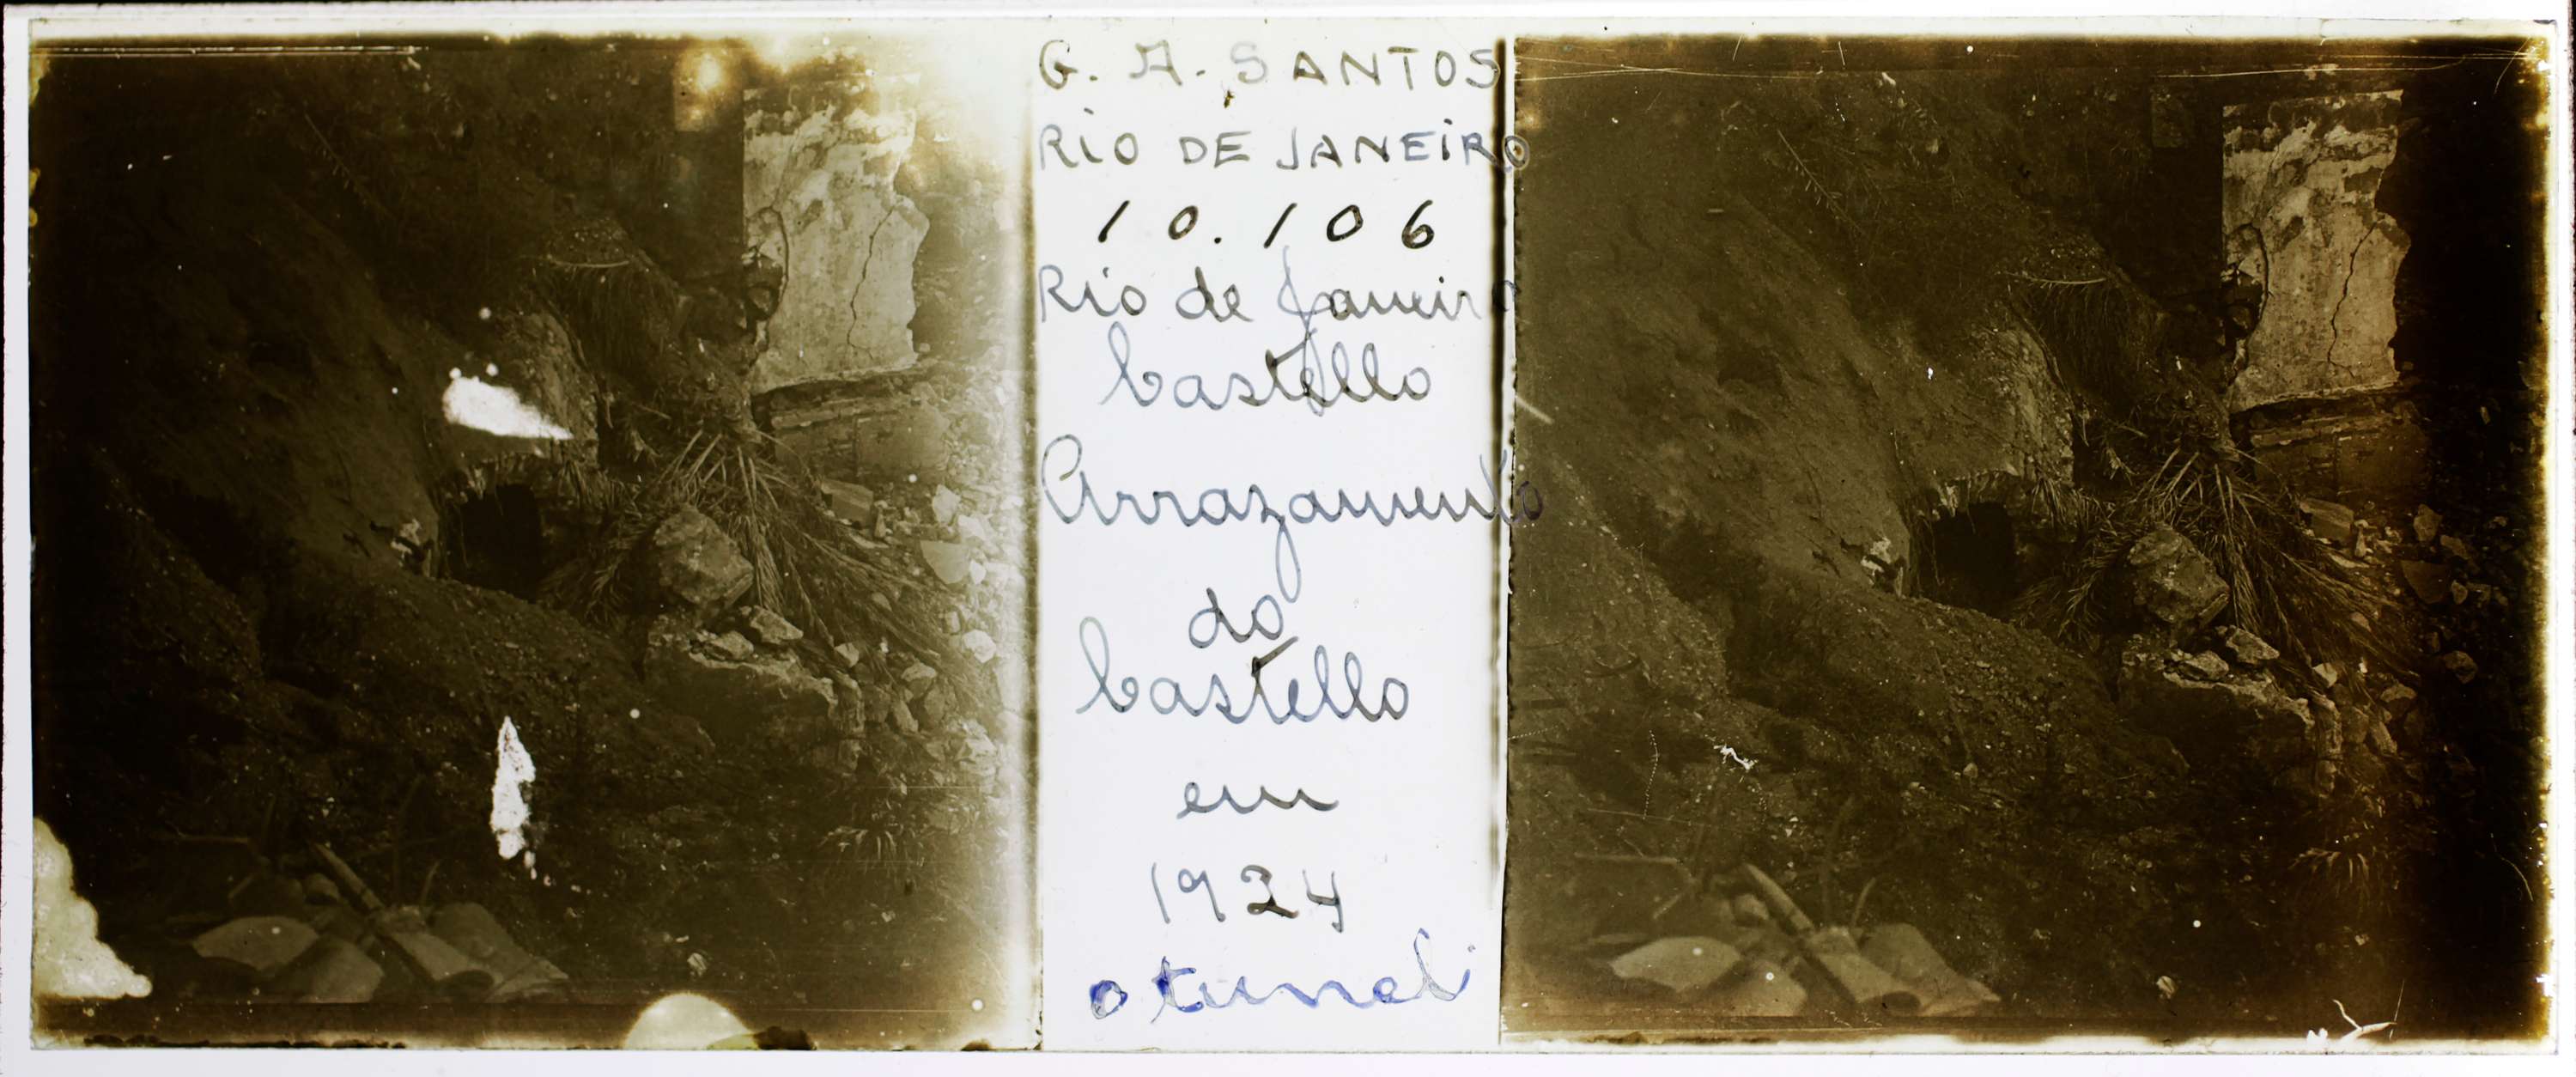 G. A. SANTOS
RIO DE JANEIRO
10.106
Rio de Janeiro
Castello
Arrazamento
do
Castello
em
1924
o tunel